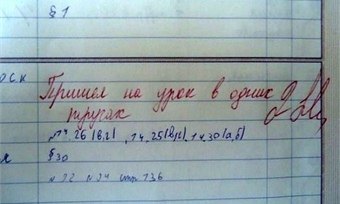 § 1
оск
Пришел на урок в одних
трусах
14.26 (в,г), 14.25 (в,г), 14.30 (а,б)
§ 30
№ 22 № 24 стр. 136